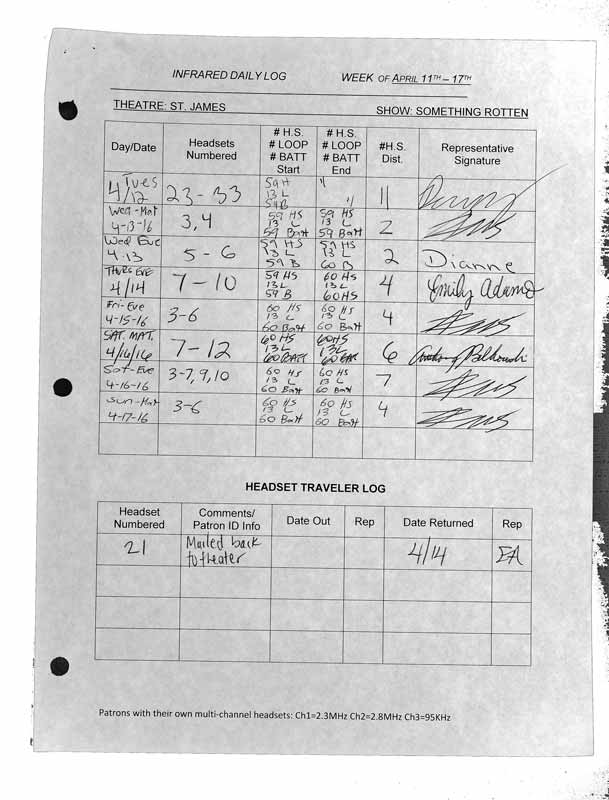 INFRARED DAILY LOG WEEK OF APRIL 11TH – 17TH
THEATRE: ST. JAMES SHOW: SOMETHING ROTTEN
Day/Date Headsets Numbered # H.S. # LOOP # BATT Start # H.S. # LOOP # BATT End #H.S. Dist. Representative Signature
Tues 4/12 23 - 33 59 H 13 L 59 B " " 11
Wed - Mat 4-13-16 3, 4 59 HS 13 L 59 Batt 59 HS 13 L 59 Batt 2
Wed Eve 4.13 5 - 6 59 HS 13 L 59 B 59 HS 13 L 60 B 2 Dianne
THURS EVE 4/14 7 - 10 59 HS 13 L 59 B 60 HS 13 L 60 HS 4 Emily Adams
Fri-Eve 4-15-16 3-6 60 HS 13 L 60 Batt 60 HS 13 L 60 Batt 4
SAT. MAT. 4/16/16 7 - 12 60 HS 13 L 60 BATT 60 HS 13 L 60 BAT 6
Sat-Eve 4-16-16 3-7, 9, 10 60 HS 13 L 60 Batt 60 HS 13 L 60 Batt 7
Sun-Mat 4-17-16 3-6 60 HS 13 L 60 Batt 60 HS 13 L 60 Batt 4
HEADSET TRAVELER LOG
Headset Numbered Comments/ Patron ID Info Date Out Rep Date Returned Rep
21 Mailed back to theater 4/14 EA
Patrons with their own multi-channel headsets: Ch1=2.3MHz Ch2=2.8MHz Ch3=95KHz